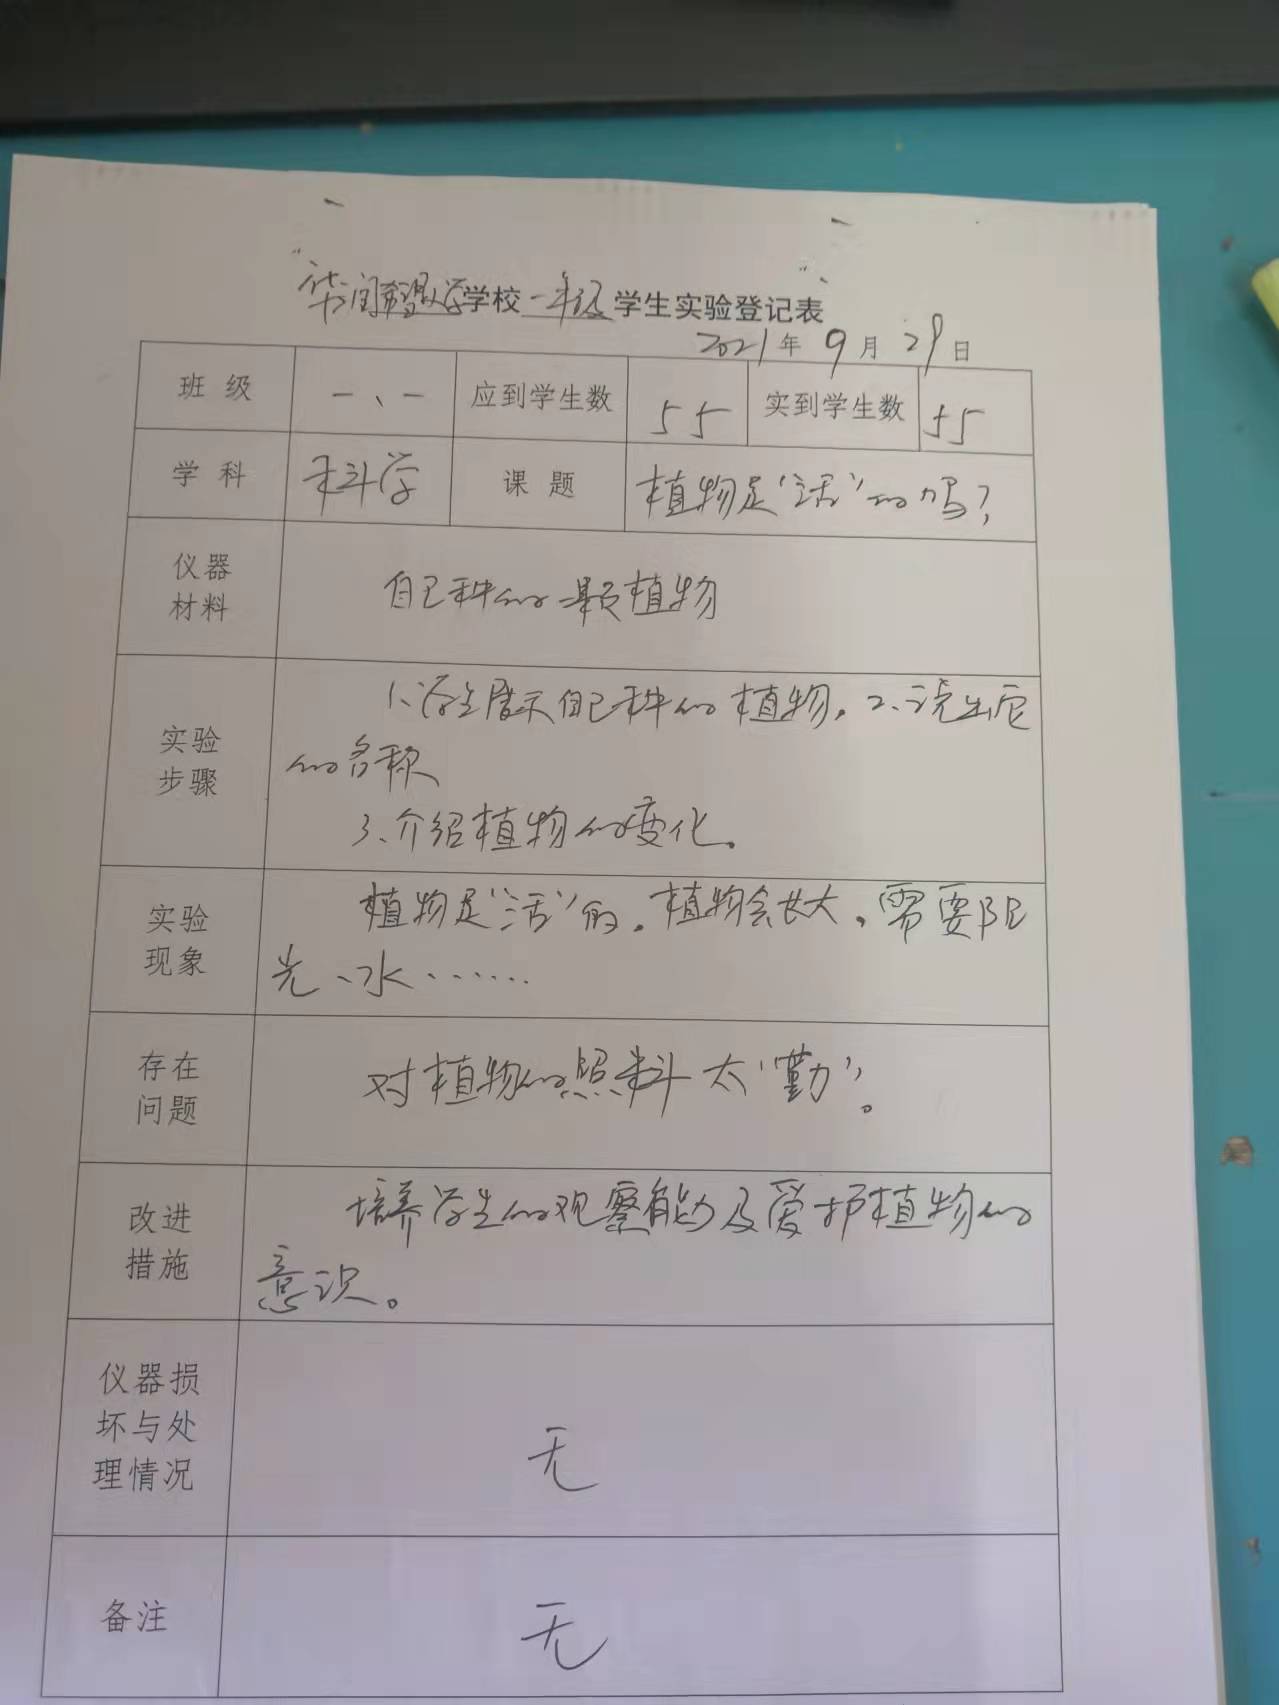 华润希望小学学校一年级学生实验登记表
2021年9月29日
班级 一、一 应到学生数 55 实到学生数 55
学科 科学 课题 植物是“活”的吗？
仪器
材料
自己种的一颗植物
实验
步骤
1、学生展示自己种的植物。2、说出它
的名称
3、介绍植物的变化。
实验
现象
植物是“活”的。植物会长大，需要阳
光、水······
存在
问题
对植物的照料太“勤”。
改进
措施
培养学生的观察能力及爱护植物的
意识。
仪器损
坏与处
理情况
无
备注
无